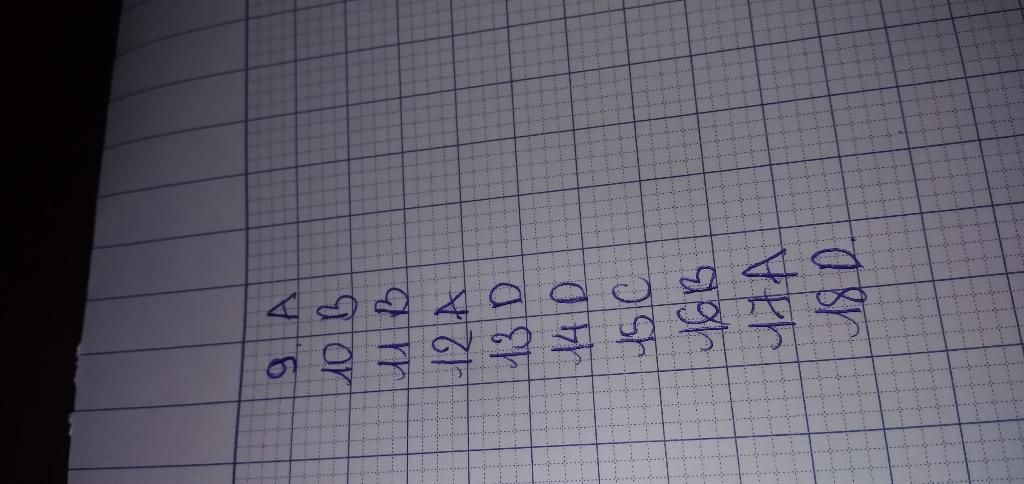 9. A
10 B
11 B
12 A
13 D
14 D
15 C
16 B
17 A
18 D